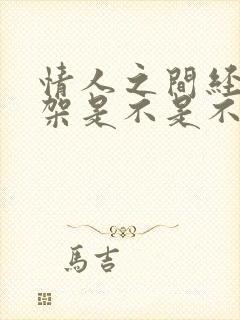 情人之間経
架是不是不
馬吉